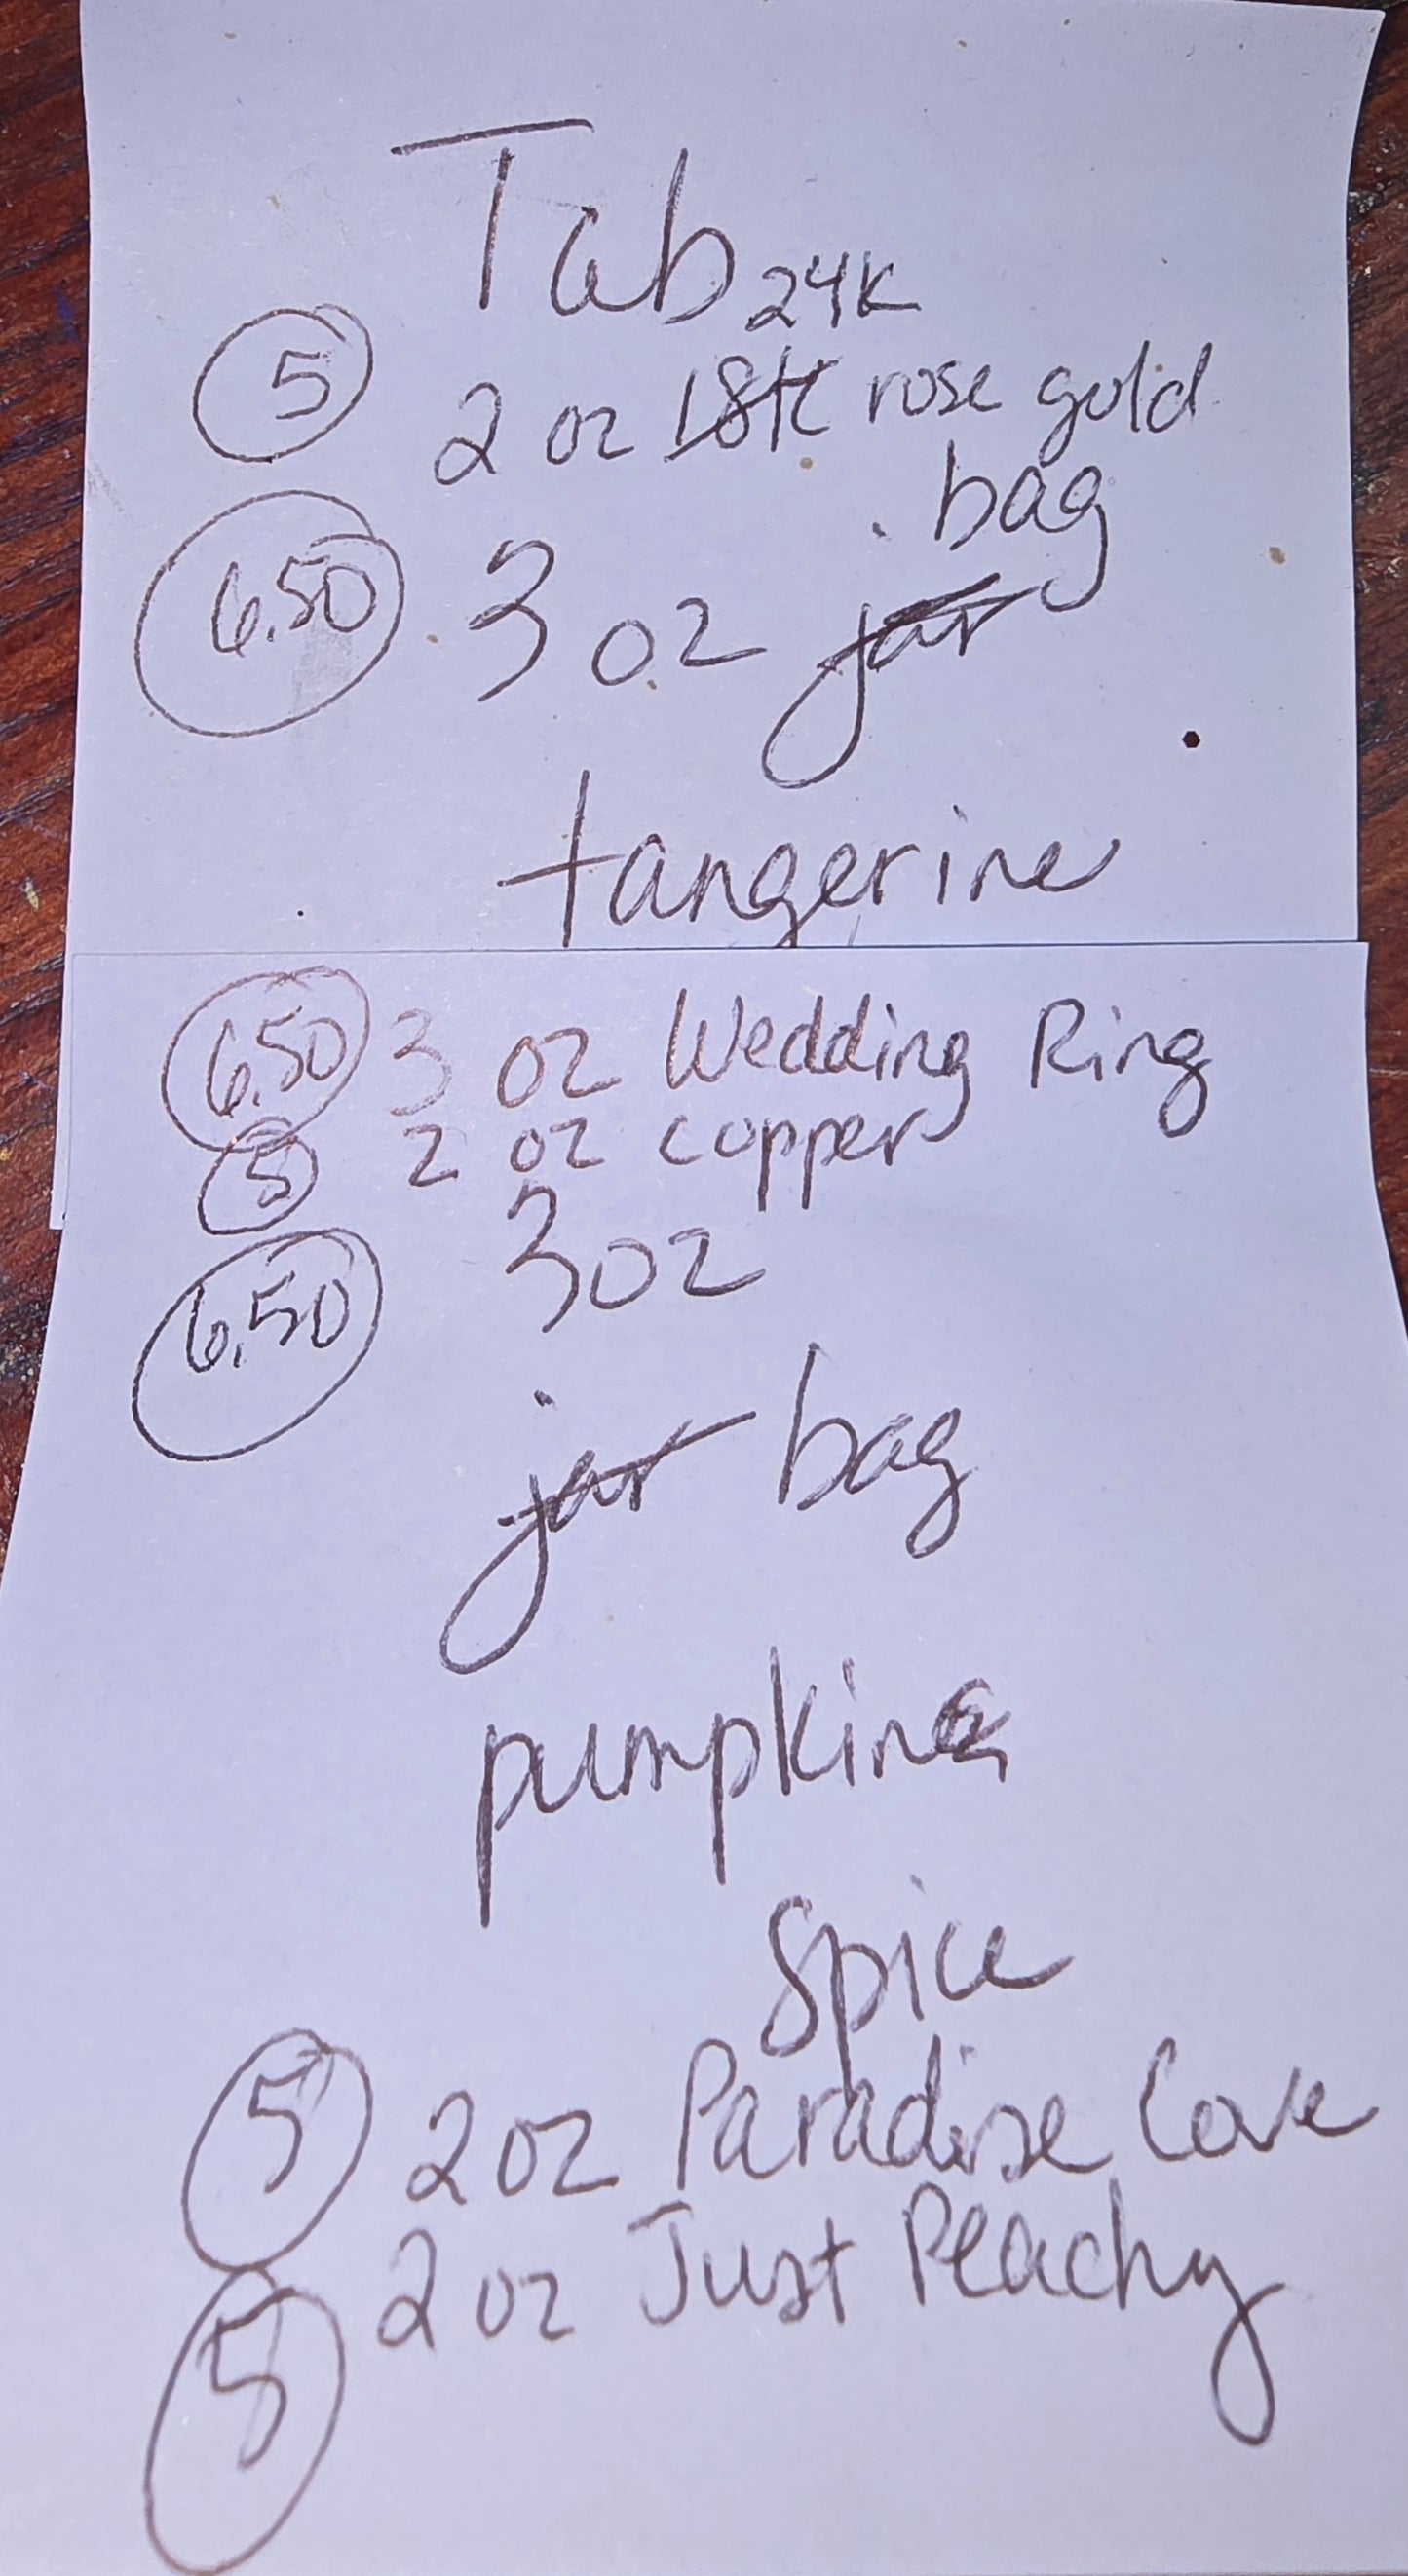 Tab
24K
5 2 oz 18K rose gold
bag
6.50 3 oz jar
tangerine
6.50 3 oz Wedding Ring
5 2 oz copper
3 oz
6.50
jar bag
pumpkin
Spice
5 2 oz Paradise Cove
2 oz Just Peachy
5